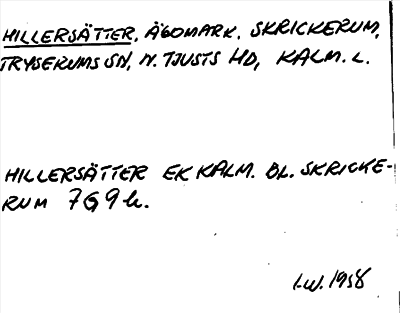 HILLERSÄTTER, ÄGOMARK, SKRICKERUM,
TRYSERUMS SN, N. TJUSTS HD, KALM. L.
HILLERSÄTTER EK KALM. BL. SKRICKE-
RUM 7G9h.
I.W. 1958